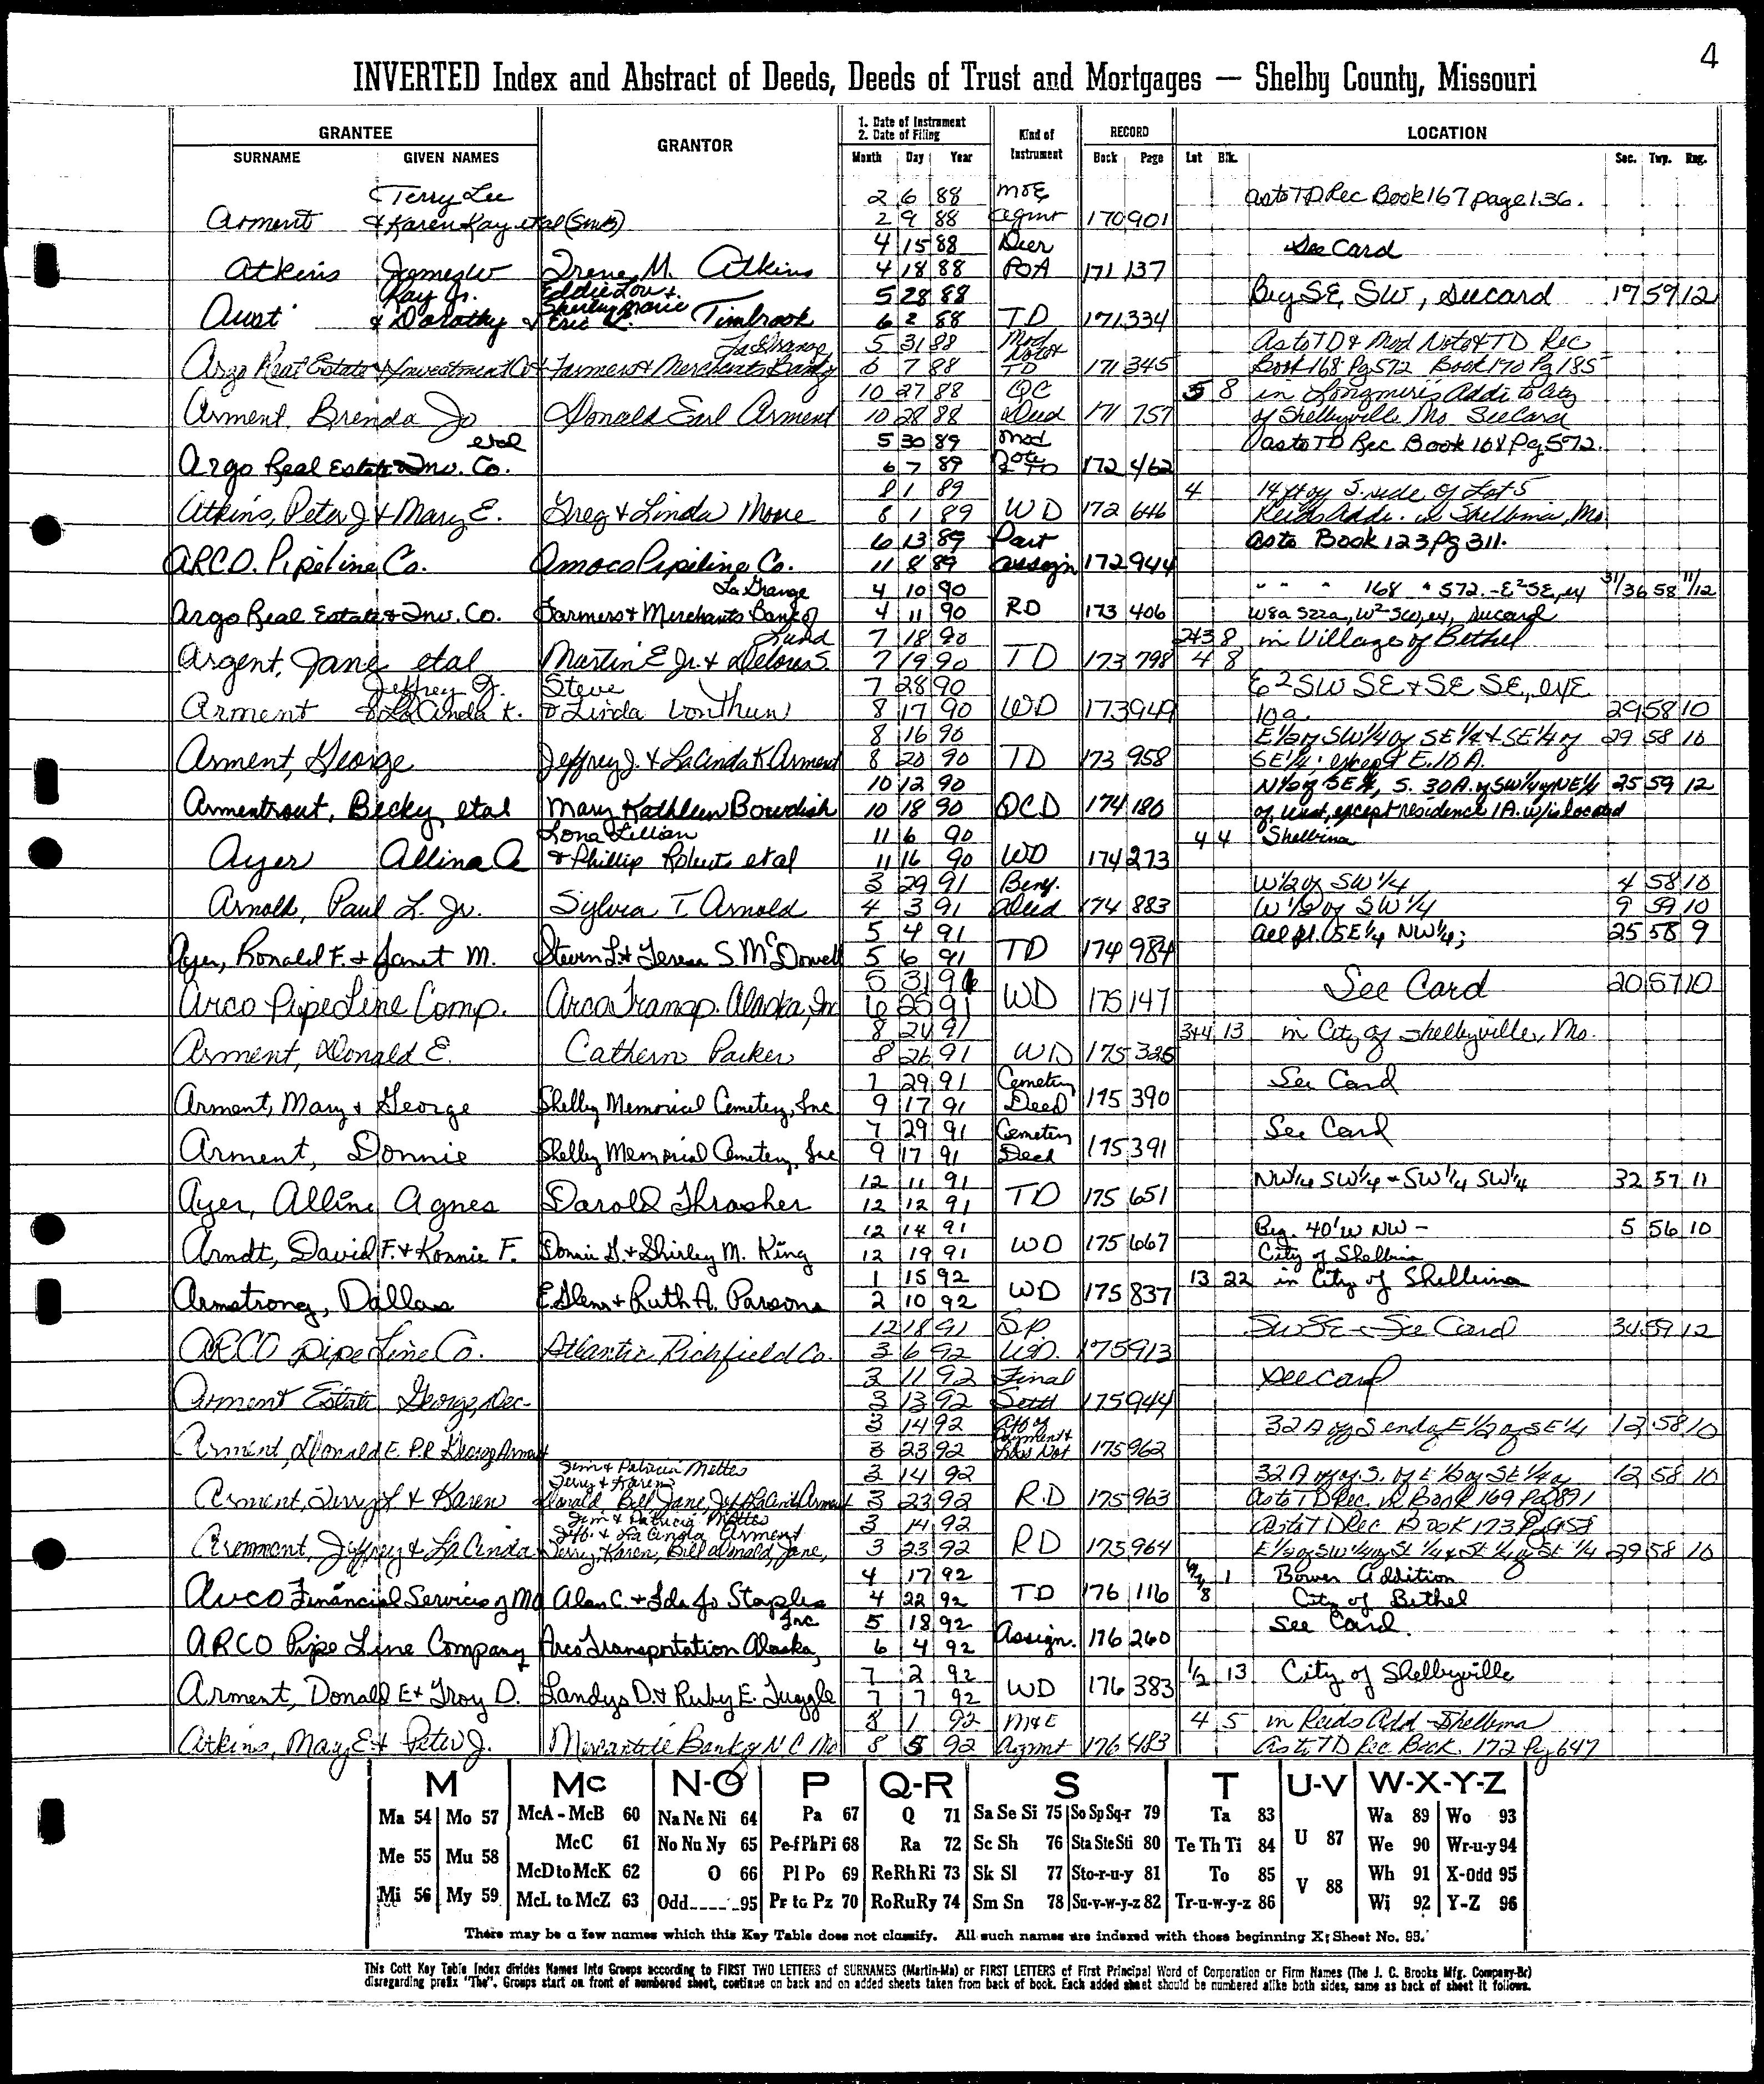 4
INVERTED Index and Abstract of Deeds, Deeds of Trust and Mortgages — Shelby County, Missouri
GRANTEE GRANTOR 1. Date of Instrument 2. Date of Filing Kind of Instrument RECORD LOCATION
SURNAME GIVEN NAMES Month Day Year Book Page Lot Blk. Sec. Twp. Rng.
Terry Lee 2 6 88 M&E as to TD Rec Book 167 page 136.
Arment & Karen Kay etal (SMB) 2 9 88 Agmt 170 901
4 15 88 Duer See Card
Atkins James W Irene M. Atkins 4 18 88 POA 171 137
Ray Jr. Eddie Lou & Shirley Marie 5 28 88 Beg SE, SW, See card 17 59 12
Aust & Dorothy & Eric L. Timbrook 6 2 88 TD 171 334
La Grange 5 31 88 Mod Note & As to TD & Mod Note & TD Rec
Argo Real Estate & Investment Co Farmers & Merchants Bank of 6 7 88 TD 171 345 Book 168 Pg 572 Book 170 Pg 185
10 27 88 QC 5 8 in Longmire's Addi to City
Arment Brenda Jo Donald Earl Arment 10 28 88 Deed 171 757 of Shelbyville Mo See Card
etal 5 30 89 Mod as to TD Rec Book 168 Pg 572.
Argo Real Estate & Inv. Co. 6 7 89 Note & TD 172 462
8 1 89 4 14 ft of S. side of Lot 5
Atkins, Peter J & Mary E. Greg & Linda Moore 8 1 89 WD 172 646 Reids Addi. in Shelbina, Mo.
6 13 89 Part as to Book 123 Pg 311.
ARCO. Pipeline Co. Amoco Pipeline Co. 11 8 89 assign 172 944
La Grange 4 10 90 " " " 168 " 572. - E²SE, ex 31/36 58 11/12
Argo Real Estate & Inv. Co. Farmers & Merchants Bank of 4 11 90 RD 173 406 W8a S22a, W²SW, ex, see card
Lund 7 18 90 2&3 8 in Village of Bethel
Argent, Jane etal Martin E Jr. & Delores S. 7 19 90 TD 173 798 4 8
Jeffrey J. Steve 7 28 90 E²SW SE & SE SE, ex E
Arment & La Cinda K. & Linda VonThun 8 17 90 WD 173 949 10a. 29 58 10
8 16 90 E 1/2 of SW 1/4 of SE 1/4 & SE 1/4 of 29 58 10
Arment, George Jeffrey J. & LaCinda K Arment 8 20 90 TD 173 958 SE 1/4; except E. 10 A.
10 12 90 N 1/2 of SE 1/4, S. 30 A. of SW 1/4 of NE 1/4 25 59 12
Armentrout, Becky etal Mary Kathleen Bowdish 10 18 90 QCD 174 180 of west, except residence 1A. w/is located
Lona Lillian 11 6 90 4 4 Shelbina
Ayer Allina A & Phillip Roberts etal 11 16 90 WD 174 273
3 29 91 Benf. W 1/2 of SW 1/4 4 58 10
Arnold, Paul L. Jr. Sylvia T. Arnold 4 3 91 Deed 174 883 W 1/2 of SW 1/4 9 59 10
5 4 91 all pt. (SE 1/4 NW 1/4; 25 58 9
Ayer, Ronald F. & Janet M. Steven L. & Teresa S. McDowell 5 6 91 TD 174 984
5 31 91 See Card 20 57 10
Arco Pipe Line Comp. Arco Transp. Alaska, Inc 6 25 91 WD 175 147
8 24 91 3&4 13 in City of Shelbyville, Mo.
Arment, Donald E. Cathern Parker 8 26 91 WD 175 325
7 29 91 Cemetery See Card
Arment, Mary & George Shelby Memorial Cemetery, Inc 9 17 91 Deed 175 390
7 29 91 Cemetery See Card
Arment, Donnie Shelby Memorial Cemetery, Inc 9 17 91 Deed 175 391
12 11 91 NW 1/4 SW 1/4 & SW 1/4 SW 1/4 32 57 11
Ayer, Alline Agnes Darold Thrasher 12 12 91 TD 175 651
12 14 91 Beg. 40' W NW - 5 56 10
Arndt, David F. & Konnie F. Donnie G. & Shirley M. King 12 19 91 WD 175 667 City of Shelbina
1 15 92 13 22 in City of Shelbina
Armstrong, Dallas E. Glenn & Ruth A. Parsons 2 10 92 WD 175 837
12 18 91 Sp SW SE - See Card 34 59 12
ARCO pipe Line Co. Atlantic Richfield Co. 3 6 92 W.D. 175 913
3 11 92 Final See card
Arment Estate George, Dec. 3 13 92 Settl 175 944
3 14 92 Aff of Payment & 32 A of S end of E 1/2 of SE 1/4 12 58 10
Arment, Donald E. P.R. George Arment 3 23 92 Loss Not 175 962
Jim & Patricia Mettes Terry & Karen 3 14 92 32 A of S. of E 1/2 of SE 1/4 12 58 10
Arment, Terry L & Karen Donald, Bill Jane, Jeff LaCinda Arment 3 23 92 R.D 175 963 As to TD Rec. in Book 169 Pg 891
Jim & Patricia Mettes Jeff. & La Cinda Arment 3 14 92 As to TD Rec Book 173 Pg 958
Aremont, Jeffrey & La Cinda Terry, Karen, Bill Donald, Jane, 3 23 92 RD 175 964 E 1/2 of SW 1/4 of SE 1/4 & SE 1/4 of SE 1/4 29 58 10
4 17 92 1 Bower Addition
Avco Financial Services of Mo Alan C. & Ida Jo Staples 4 22 92 TD 176 116 8 City of Bethel
Inc 5 18 92 See Card.
ARCO Pipe Line Company Arco Transportation Alaska, 6 4 92 Assign. 176 260
7 2 92 1/2 13 City of Shelbyville
Arment, Donald E & Troy D. Landys D. & Ruby E. Tuggle 7 7 92 WD 176 383
8 1 92 M&E 4 5 in Reids Add - Shelbina
Atkins, Mary E & Peter J. Mercantile Bank of N C Mo 8 5 92 Agmt 176 483 As to TD Rec Book 172 Pg 647
M Mc N-O P Q-R S T U-V W-X-Y-Z
Ma 54 Mo 57 McA - McB 60 Na Ne Ni 64 Pa 67 Q 71 Sa Se Si 75 So Sp Sq-r 79 Ta 83 Wa 89 Wo 93
McC 61 No Nu Ny 65 Pe-f Ph Pi 68 Ra 72 Sc Sh 76 Sta Ste Sti 80 Te Th Ti 84 U 87 We 90 Wr-u-y 94
Me 55 Mu 58 McD to McK 62 O 66 Pl Po 69 Re Rh Ri 73 Sk Sl 77 Sto-r-u-y 81 To 85 V 88 Wh 91 X-Odd 95
Mi 56 My 59 McL to McZ 63 Odd 95 Pr to Pz 70 Ro Ru Ry 74 Sm Sn 78 Su-v-w-y-z 82 Tr-u-w-y-z 86 Wi 92 Y-Z 96
There may be a few names which this Key Table does not classify. All such names are indexed with those beginning X; Sheet No. 95.
This Cott Key Table Index divides Names into Groups according to FIRST TWO LETTERS of SURNAMES (Martin-Ma) or FIRST LETTERS of First Principal Word of Corporation or Firm Names (The J. C. Brooks Mfg. Company-Br)
disregarding prefix "The". Groups start on front of numbered sheet, continue on back and on added sheets taken from back of book. Each added sheet should be numbered alike both sides, same as back of sheet it follows.